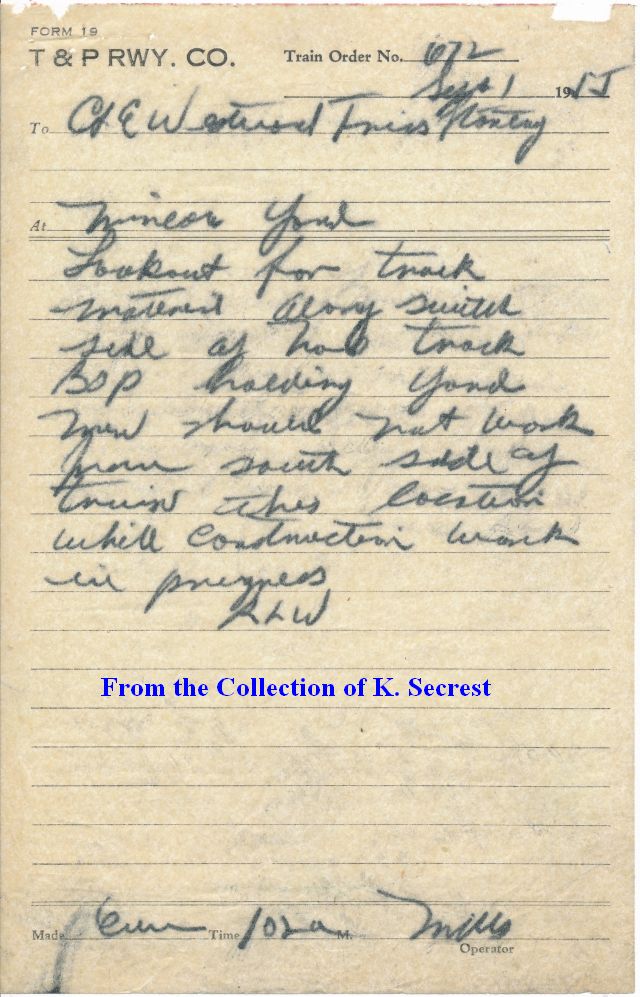 FORM 19
T & P RWY. CO. Train Order No. 672
Sept 1 1955
To C&E Westward Trains
At Mineola Yard
Lookout for track
material along south
side of track
holding Yard
Men should not work
from south side of
train this location
while construction work
in progress
RLW
From the Collection of K. Secrest
Made Com Time 102a M. Mills
Operator